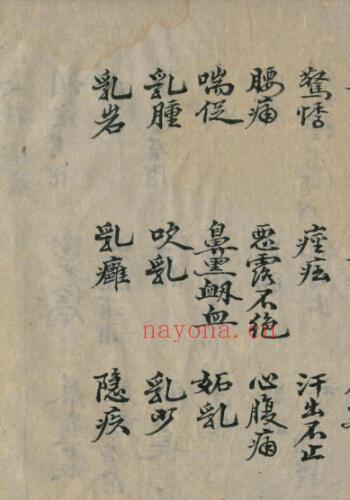 驚悸 痙痓 汗出不止
腰痛 惡露不絕 心腹痛
喘促 鼻黑衂血 妬乳
乳腫 吹乳 乳少
乳岩 乳癰 隱疾
nayona.cn